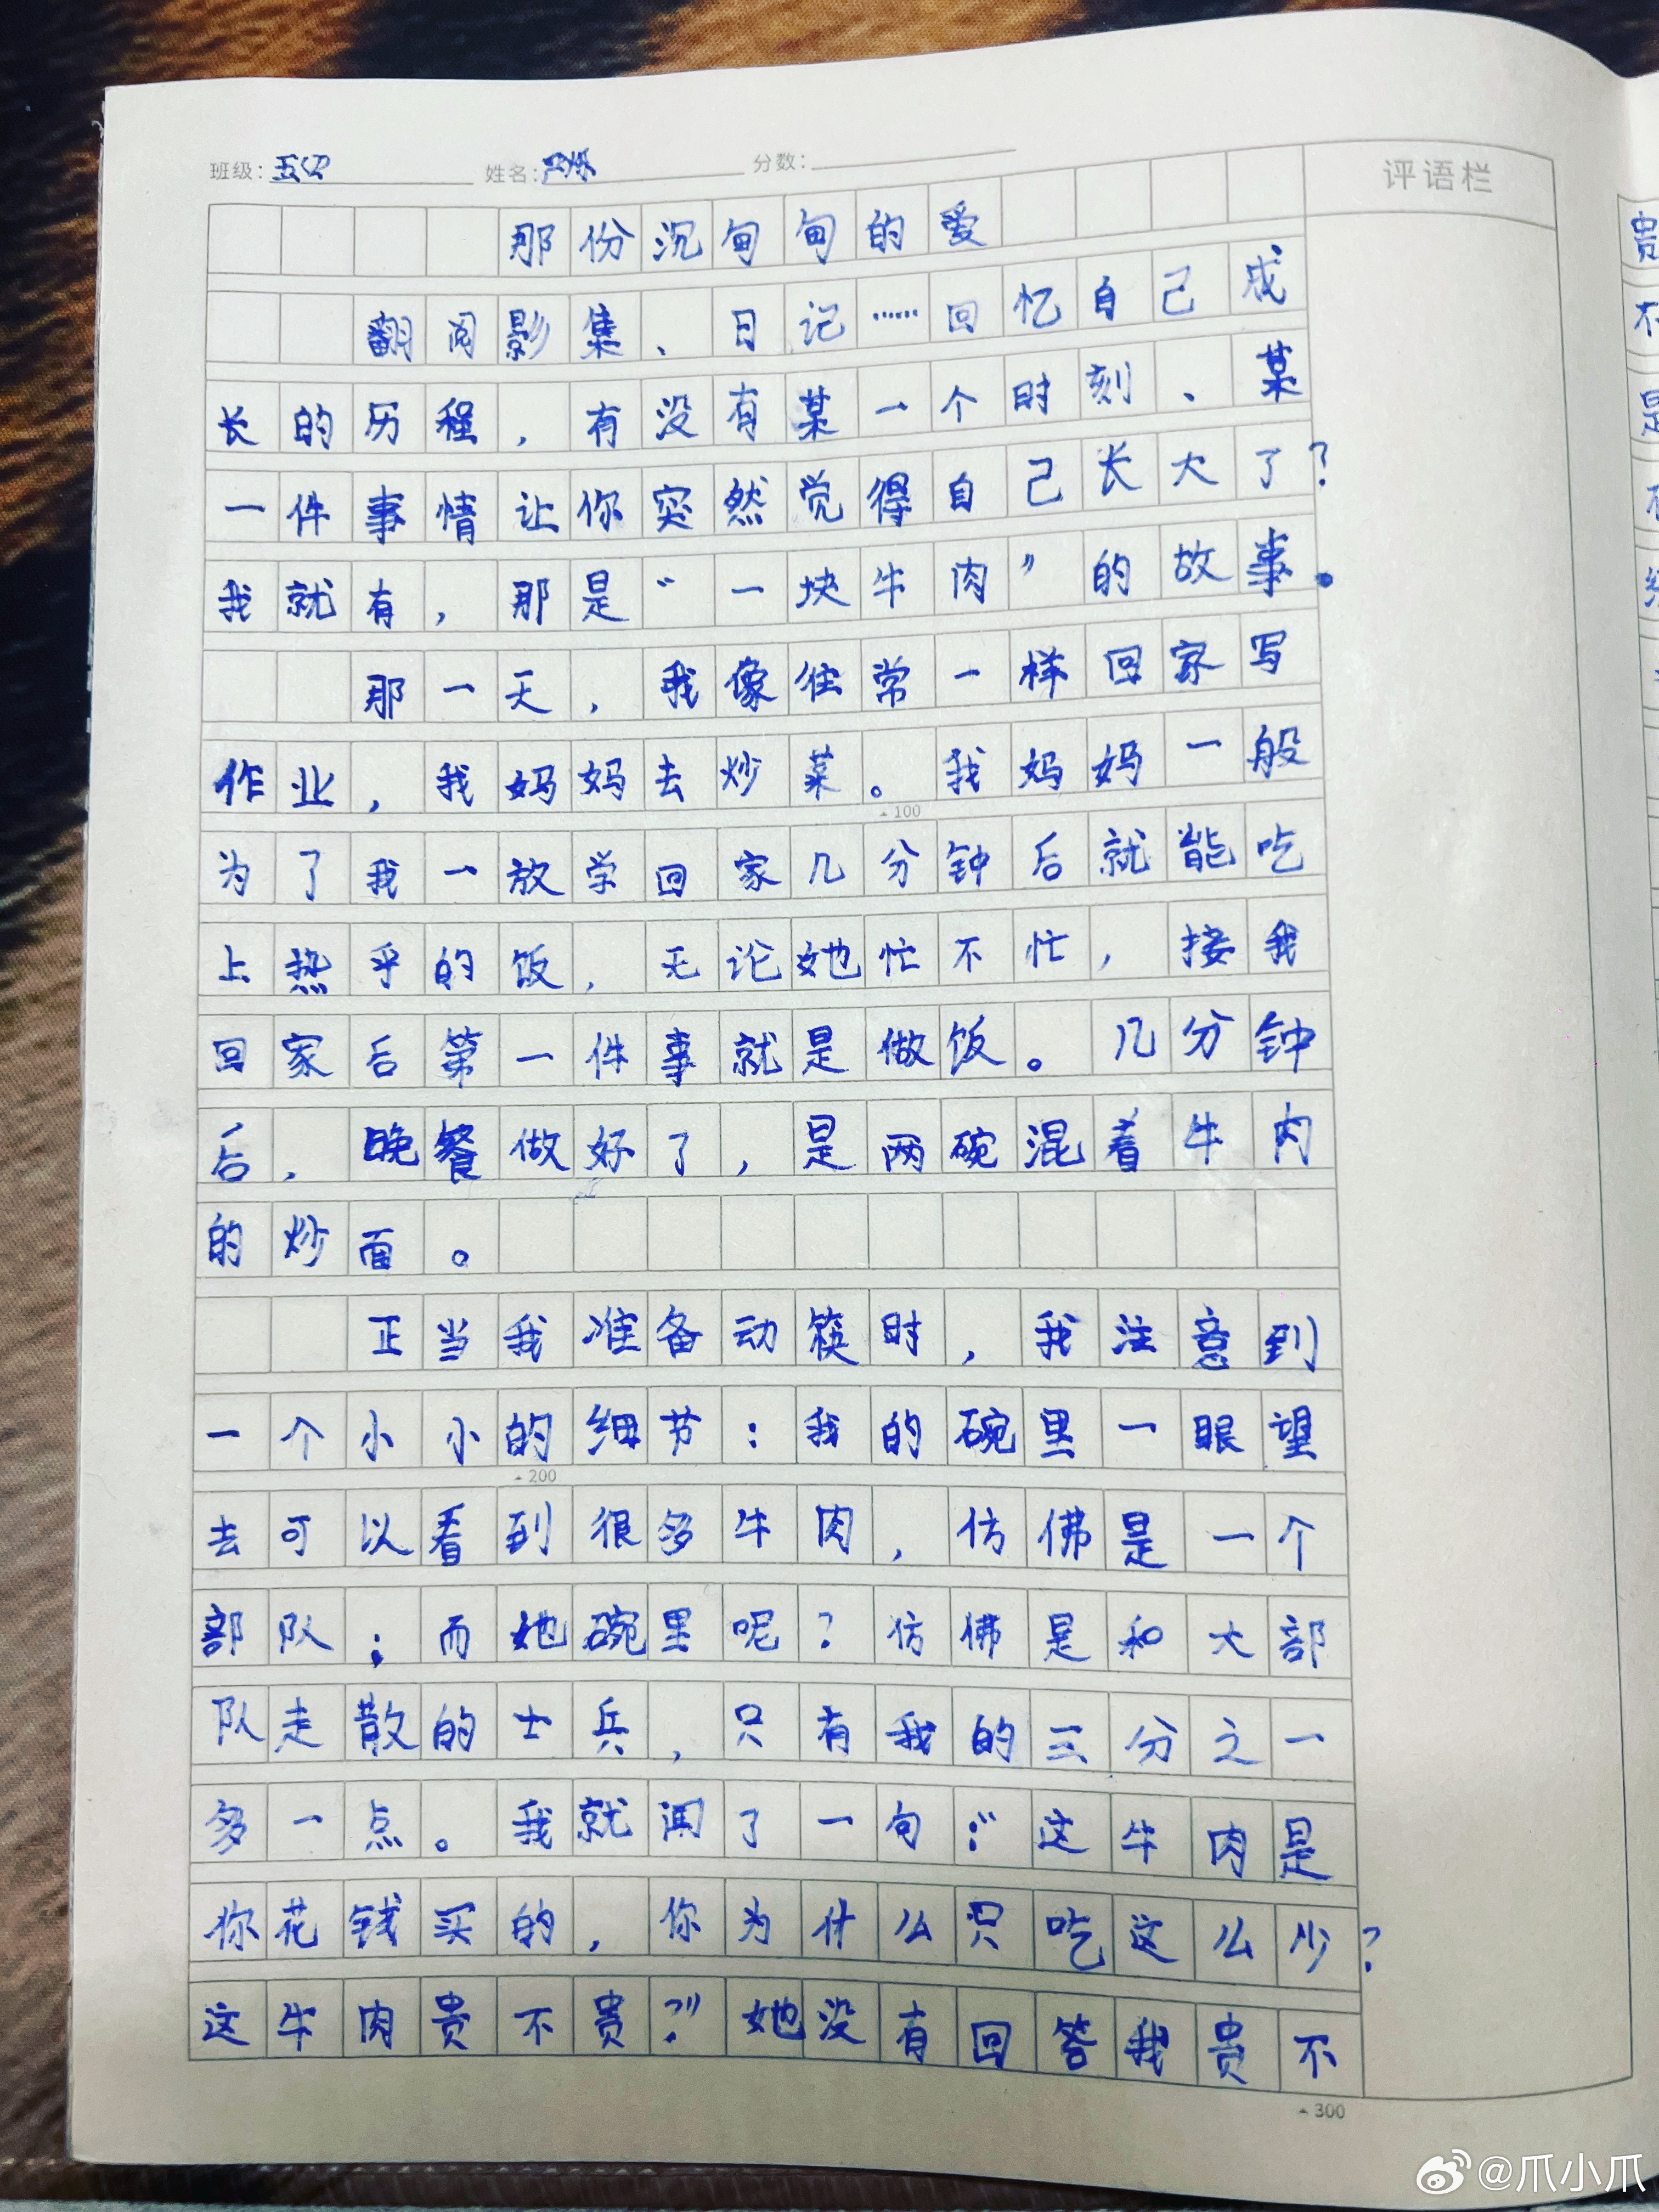 班级：五(4) 姓名： 分数：
评语栏
那份沉甸甸的爱
翻阅影集、日记……回忆自己成
长的历程，有没有某一个时刻、某
一件事情让你突然觉得自己长大了？
我就有，那是“一块牛肉”的故事。
那一天，我像往常一样回家写
作业，我妈妈去炒菜。我妈妈一般
100
为了我一放学回家几分钟后就能吃
上热乎的饭，无论她忙不忙，接我
回家后第一件事就是做饭。几分钟
后，晚餐做好了，是两碗混着牛肉
的炒面。
正当我准备动筷时，我注意到
一个小小的细节：我的碗里一眼望
200
去可以看到很多牛肉，仿佛是一个
部队；而她碗里呢？仿佛是和大部
队走散的士兵，只有我的三分之一
多一点。我就闻了一句：“这牛肉是
你花钱买的，你为什么只吃这么少？
这牛肉贵不贵？”她没有回答我贵不
300
@爪小爪